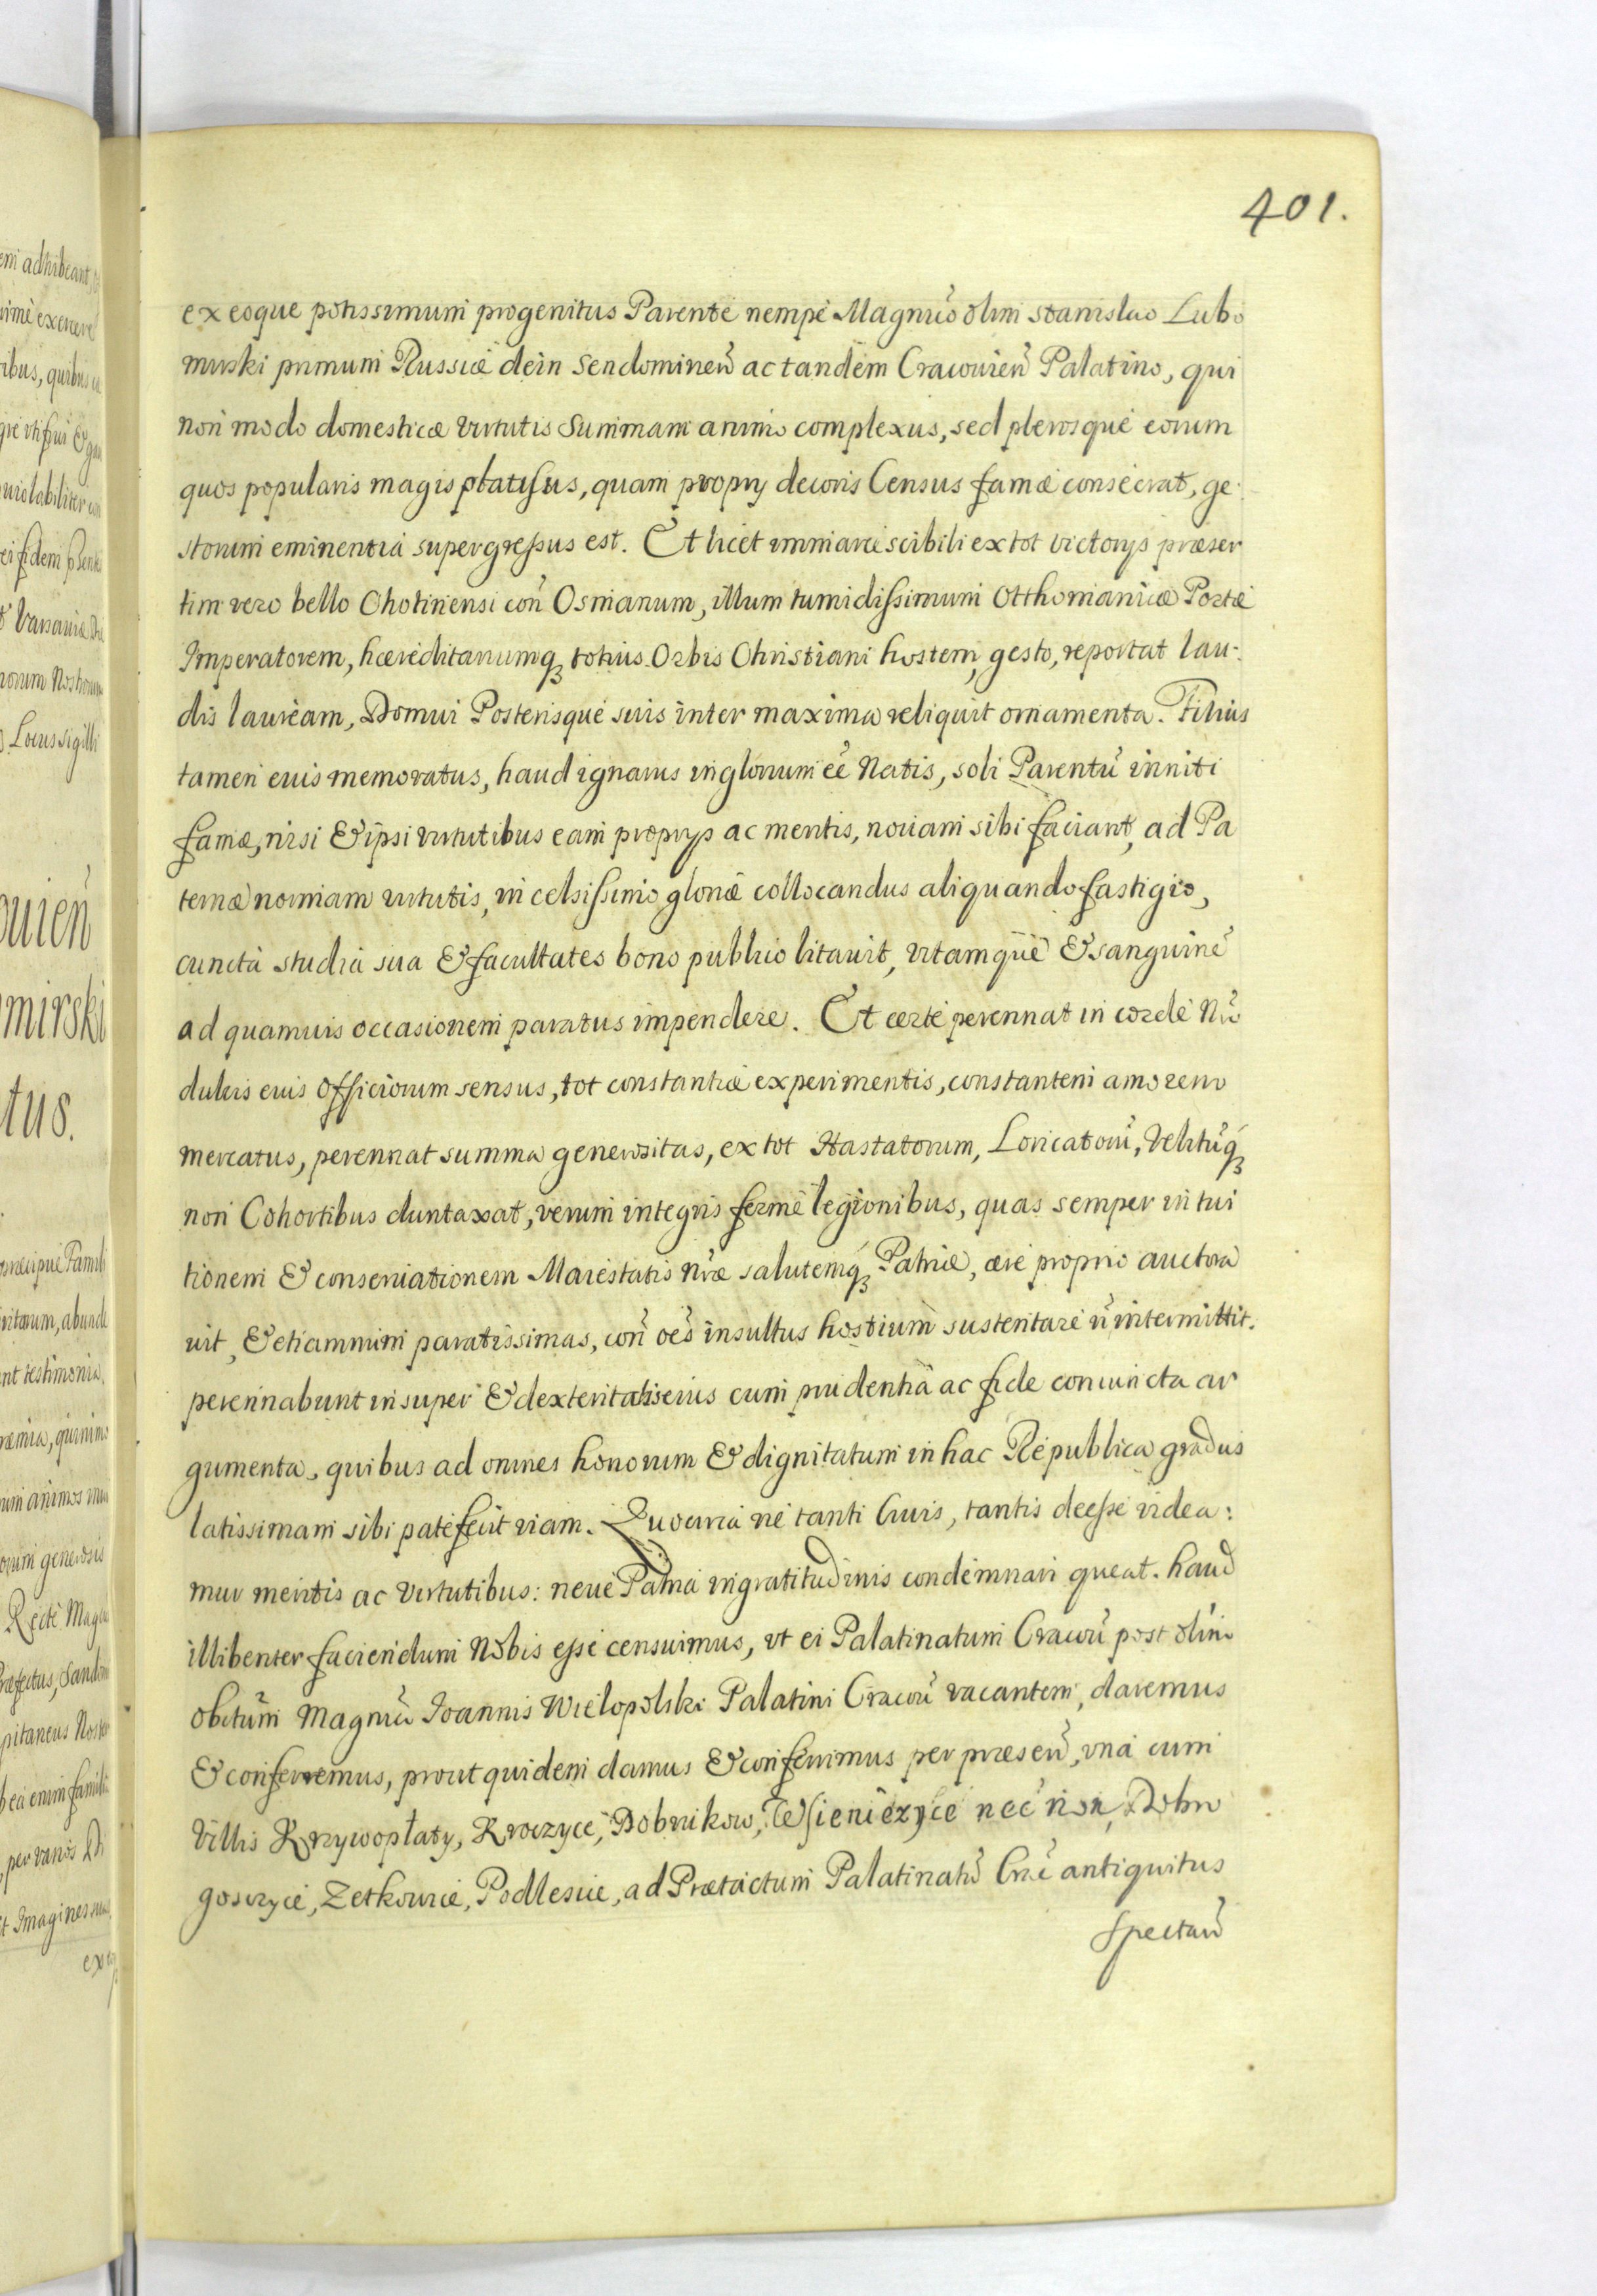 401.
ex eoque potissimum progenitus Parente nempe Magnưo olim Stanislao Lubo
mirski primum Russiæ dein Sendomirień ac tandem Cracouień Palatino, qui
non modo domesticæ virtutis Summam animo complexus, sed plerosque eorum
quos popularis magis plausus, quam proprij decoris Census famæ consecrat, ge
storum eminentia supergressus est. Et licet immarcescibili ex tot victorijs præser
tim vero bello Chotinensi coñ Osmanum, illum tumidissimum Otthomanicæ Portæ
Imperatorem, hæreditariumq₃ totius Orbis Christiani hostem, gesto, reportat lau-
dis lauream, Domui Posterisque suis inter maxima reliquit ornamenta. Filius
tamen eius memoratus, haud ignarus inglorium eẽ Natis, soli Parentũ inniti
famæ, nisi & ipsi virtutibus eam proprijs ac meritis, nouam sibi faciant, ad Pa
ternæ normam virtutis, in celsissimo gloriæ collocandus aliquando fastigio,
cuncta studia sua & facultates bono publico litauit, vitamque & sanguinẽ
ad quamuis occasionem paratus impendere. Et certe perennat in corde Nrõ
dulcis eius officiorum sensus, tot constantiæ experimentis, constantem amorem
mercatus, perennat summa generositas, ex tot Hastatorum, Loricatorũ, Velitũq₃
non Cohortibus duntaxat, verum integris ferme legionibus, quas semper in tui
tionem & conseruationem Maiestatis Nræ salutemq₃ Patriæ, ære proprio auctora
uit, & etiamnum paratissimas, coñ oẽs insultus hostium sustentare ñ intermittit.
perennabunt insuper & dexteritatis eius cum prudentia ac fide coniuncta ar
gumenta, quibus ad omnes honorum & dignitatum in hac Republica gradus
latissimam sibi patefecit viam. Quocirca ne tanti Ciuis, tantis deesse videa:
mur meritis ac virtutibus: neue Patria ingratitudinis condemnari queat. haud
illibenter faciendum Nobis esse censuimus, vt ei Palatinatum Cracoũ post olim
obitum Magnưi Ioannis Wielopolski Palatini Cracoũ vacantem, daremus
& conferremus, prout quidem damus & conferimus per præseñ, vna cum
Villis Krzywopłaty, Kroczyce, Dobrikow, Wsieniezyce nec non, Dobro
goszyce, Zetkowice, Podlesice, ad Prætactum Palatinatũ Crac̃ antiquitus
spectañ